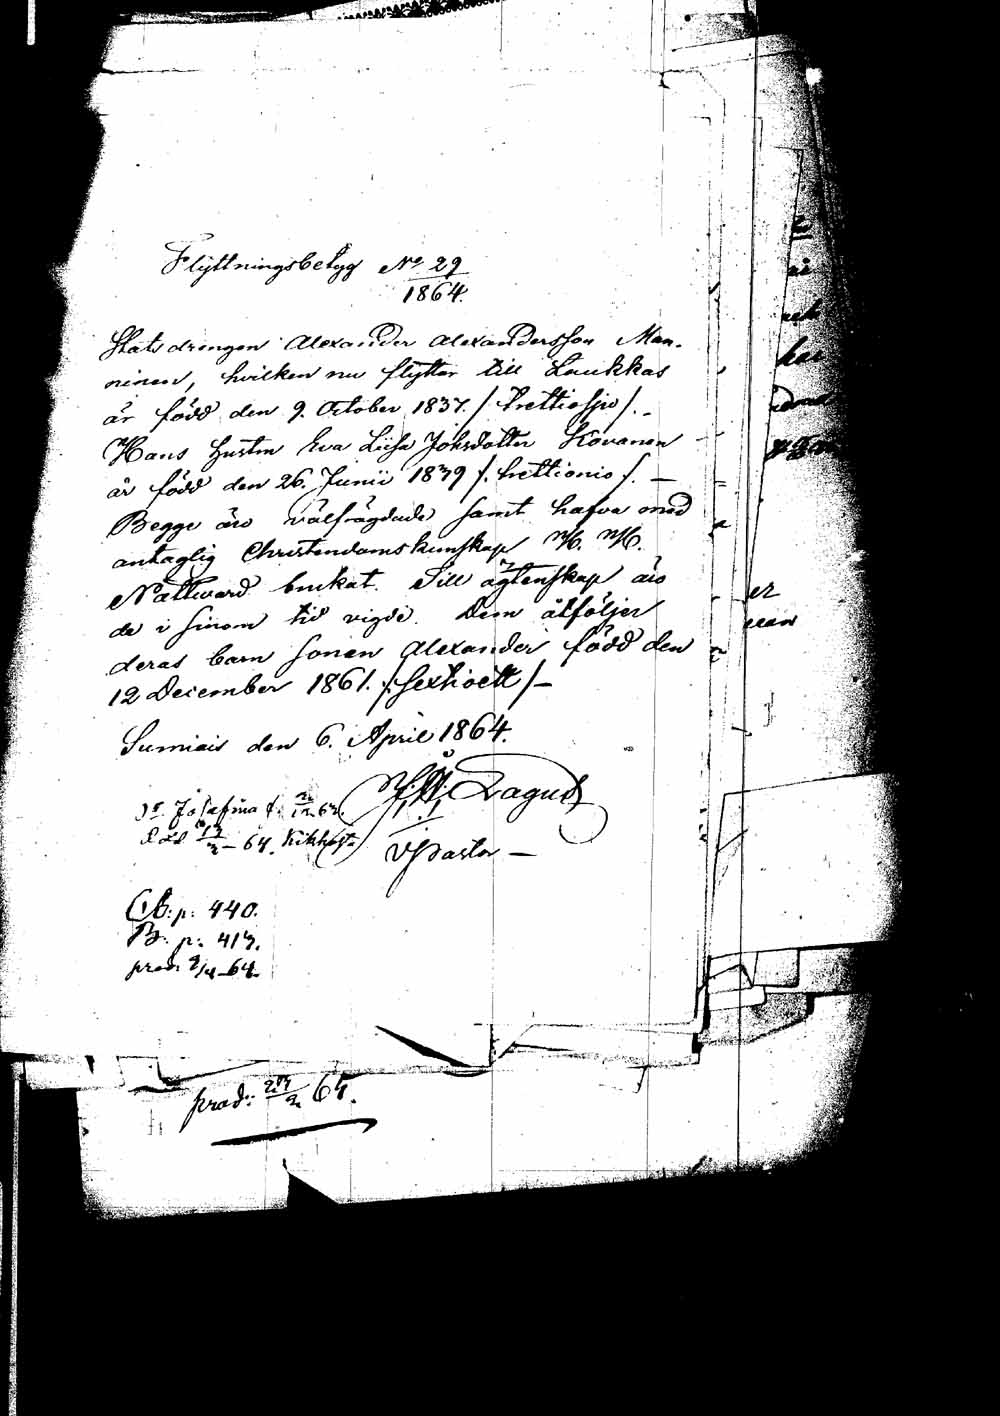 Flyttningsbetyg No 29
1864.
Statsdrengen Alexander Alexandersson Man-
ninen, hvilken nu flytter till Laukkas
är född den 9. October 1837. /:trettiosju/.
Hans Hustru Eva Lisa Johsdotter Kovanen
är född den 26. Junii 1839 /:trettionio/. —
Begge äro välfrägdade samt hafva med
antaglig Christendomskunskap H. H.
Nattward brukat. Till ägtenskap äro
de i sinom tid vigde. Dem åtföljer
deras barn sonen Alexander född den
12 December 1861. /:sextioett/—
Sumiais den 6. April 1864.
Zagus
VPastor —
Josefina f.
64.
C.B. p. 440.
B. p. 413.
prod. 9/4 64.
er
prod: 64.